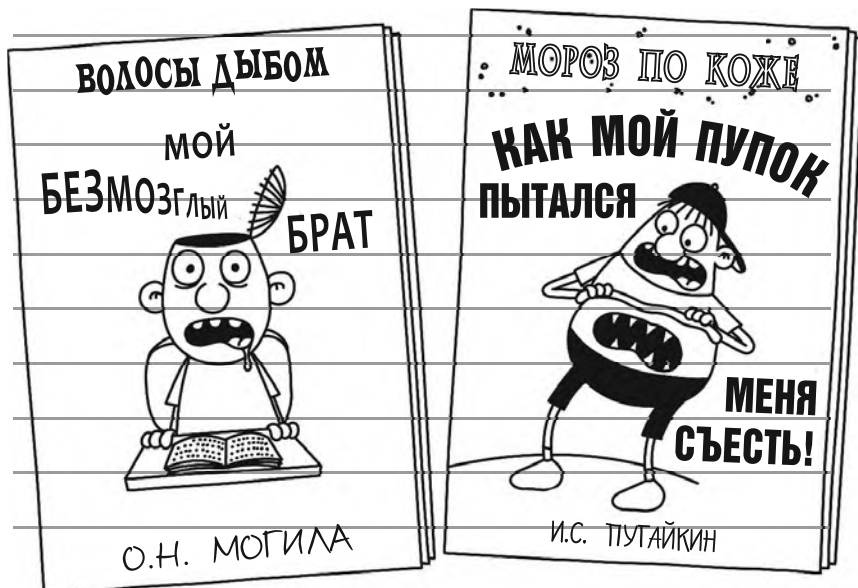 ВОЛОСЫ ДЫБОМ
МОЙ
БЕЗМОЗГЛЫЙ
БРАТ
О.Н. МОГИЛА
МОРОЗ ПО КОЖЕ
КАК МОЙ ПУПОК
ПЫТАЛСЯ
МЕНЯ
СЪЕСТЬ!
И.С. ПУГАЙКИН